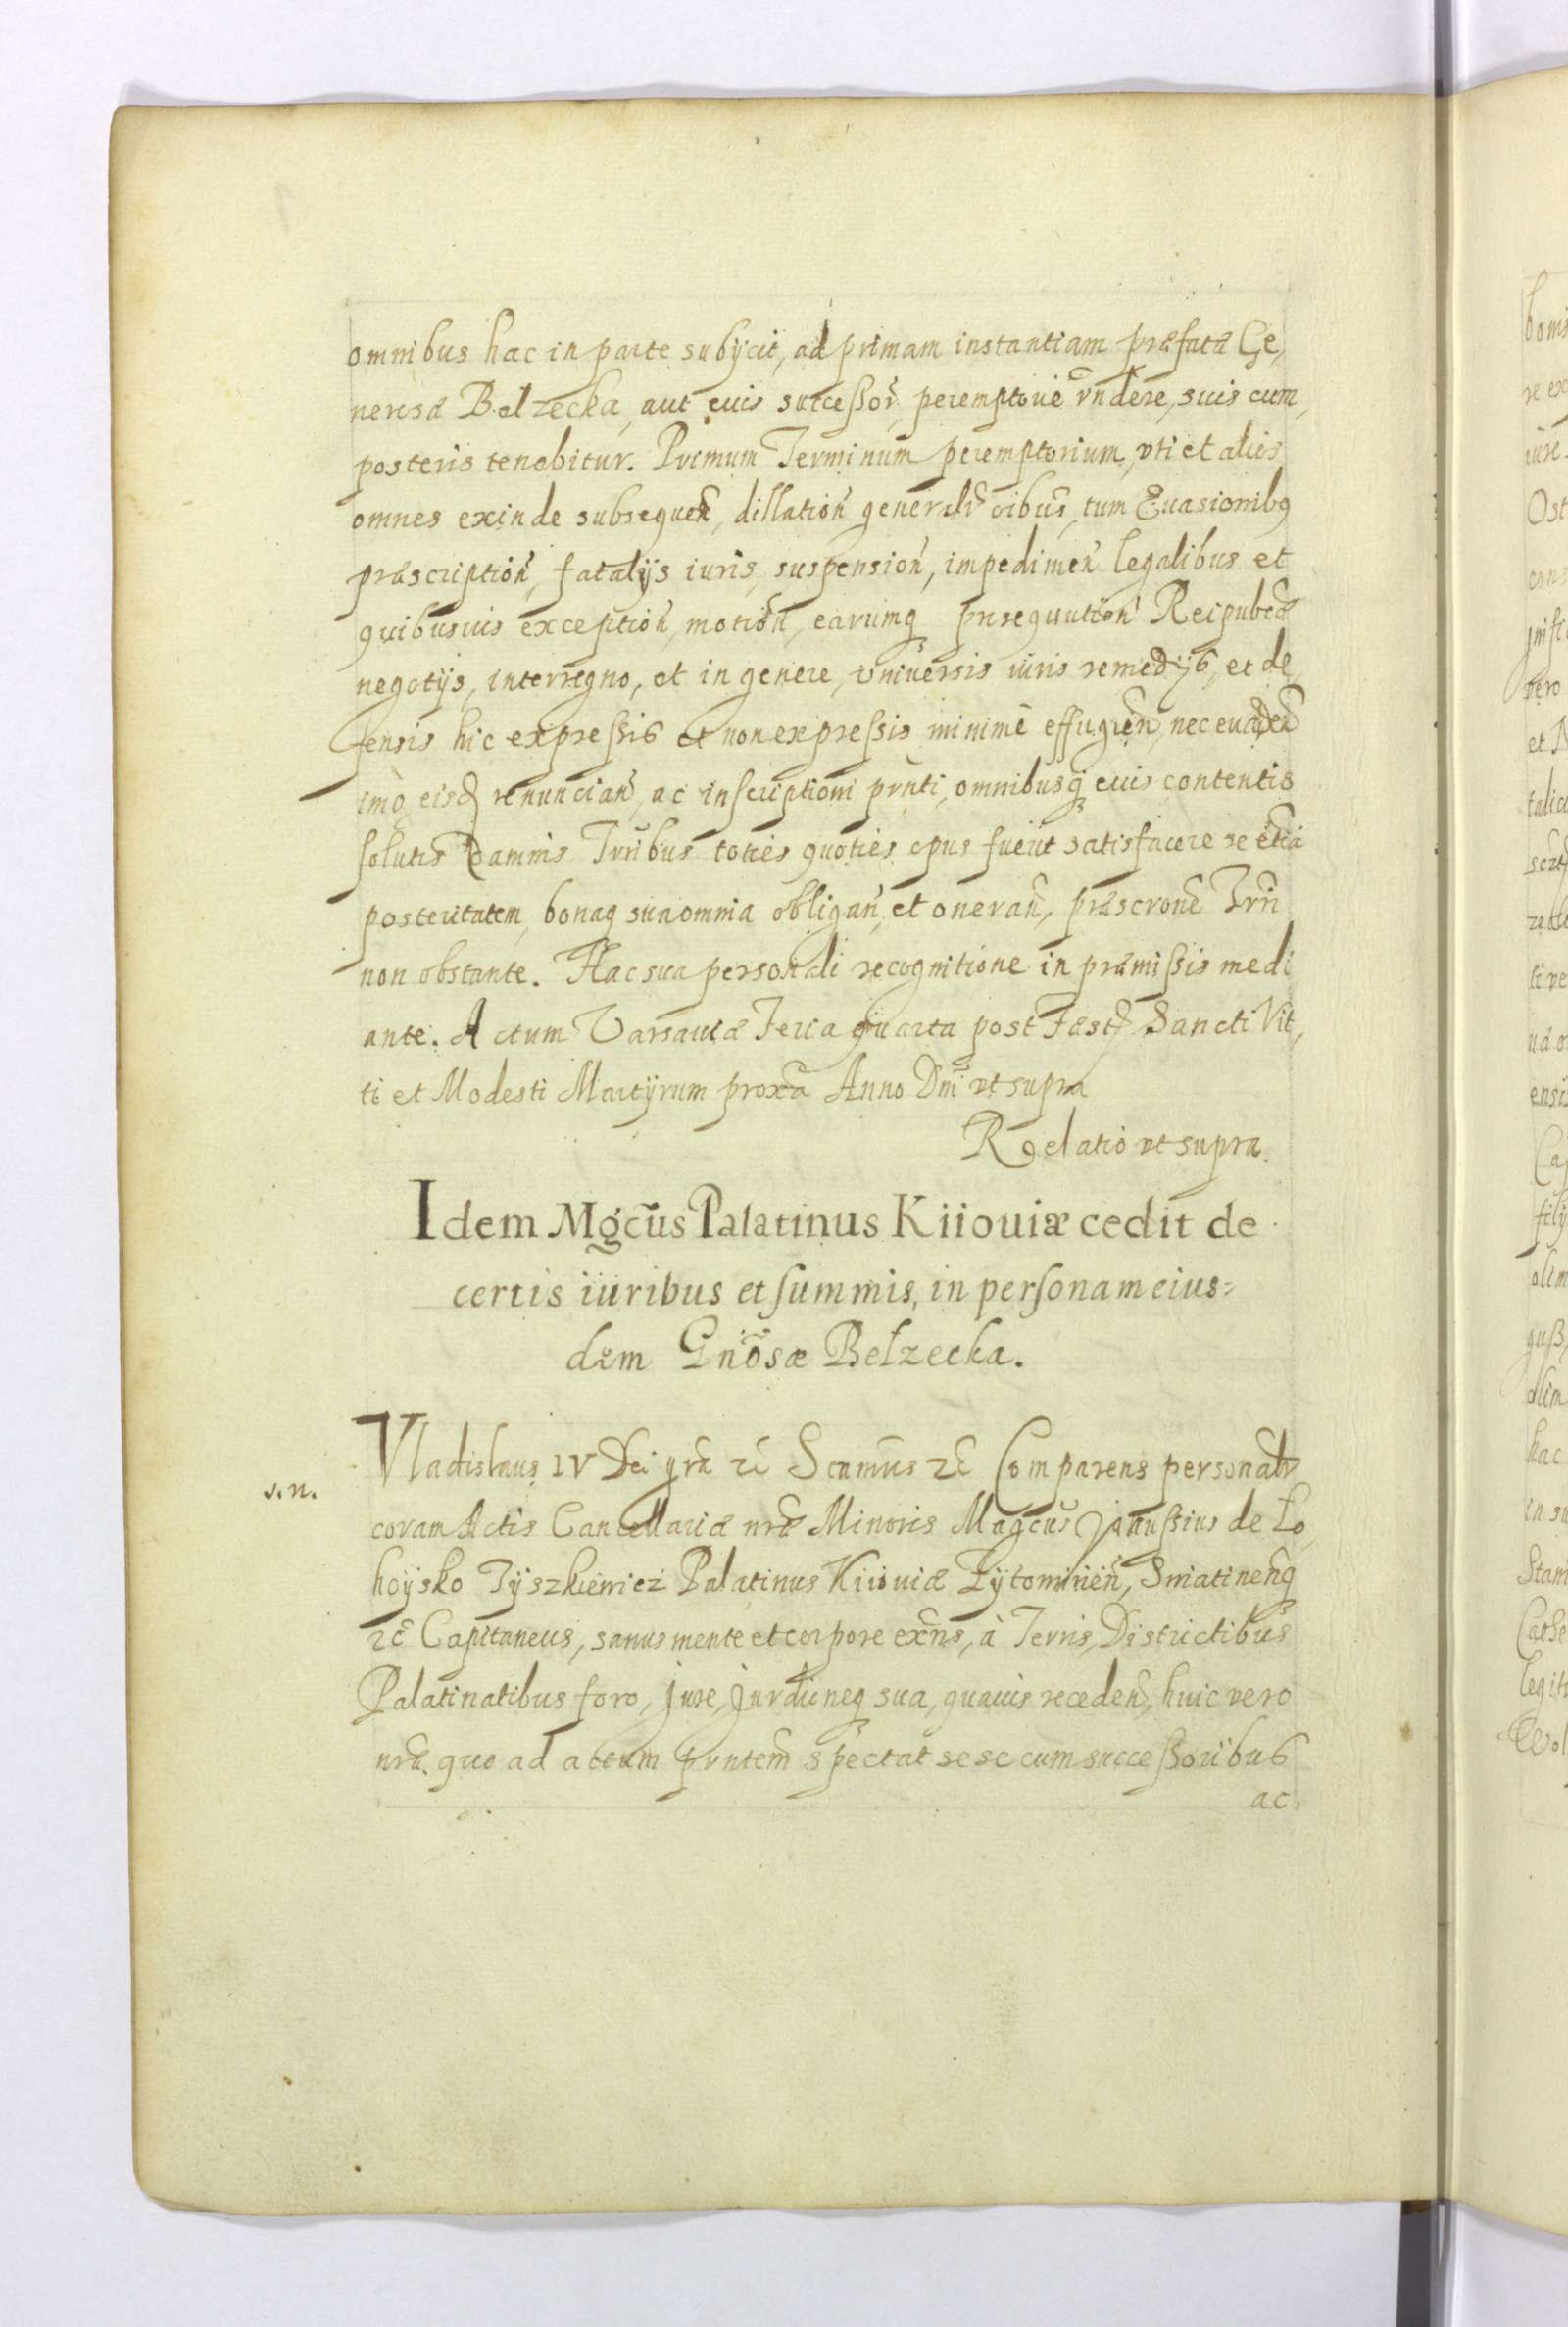 omnibus hac in parte subÿcit, ad primam instantiam præfatæ Ge,
nerosæ Belzecka, aut eius successor̃, peremptorie r̃ndere, suis cum,
posteris tenebitur. Primum Terminum peremptorium, vti et alios
omnes exinde subsequeñ, dillatioñ generalr̃ oibus, tum Euasionibq
præscriptioñ, fatalÿs iuris, suspensioñ, impedimeñ legalibus et
quibusuis exceptioñ, motioñ, earumq prosequutioñ Reipubcæ
negotÿs, interregno, et in genere, vniuersis iuris remedÿs, et de,
fensis hic expressis et non expressis minimè effugieñ, nec euadeñ
imò eisd renunciañ, ac inscriptioni pr̃nti, omnibusq eius contentis
solutis damnis Trr̃ibus toties quoties opus fuerit satisfacere se etiã
posteritatem, bonaq sua omnia obligañ, et onerañ, præscr̃one Trr̃i
non obstante. Hac sua personali recognitione in præmissis medi
ante. Actum Varsauiæ Feria quarta post Fest Sancti Vit,
ti et Modesti Martÿrum proxã Anno Dni vt supra
Relatio vt supra.
Idem Mgcũs Palatinus Kiiouiæ cedit de
certis iuribus et summis, in personam eius=
dem Gñosæ Belzecka.
Vladislaus IV Dei gr̃a zc̃ Scamus zc̃ Comparens personalr̃
s. n.
coram Actis Cancellariæ nr̃æ Minoris Magcus Janussius de Lo,
hoÿsko Tÿszkiewicz Palatinus Kiiouiæ Zÿtomirieñ, Sniatinenq
zc̃ Capitaneus, sanus mente et corpore exñs, à Terris, Districtibus
Palatinatibus foro, jure, jurdicneq sua, quauis recedeñ, huic vero
nrõ. quo ad actum prñtem spectat sese cum successoribus
ac